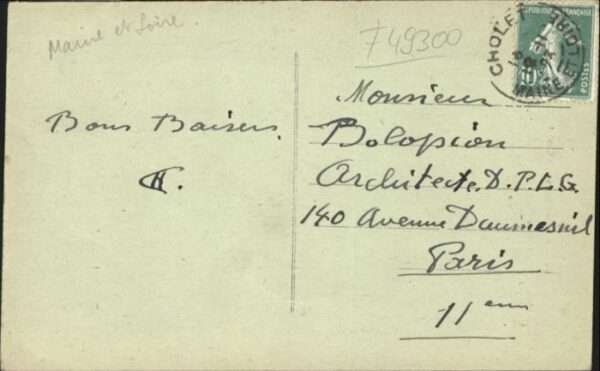 Maine et Loire
F 49300
CHOLET
MAINE ET LOIRE
RÉPUBLIQUE FRANÇAISE
10
POSTES
Bons Baisers.
Monsieur
Bolopion
Architecte. D.P.L.G.
140 Avenue Daumesnil
Paris
11eme